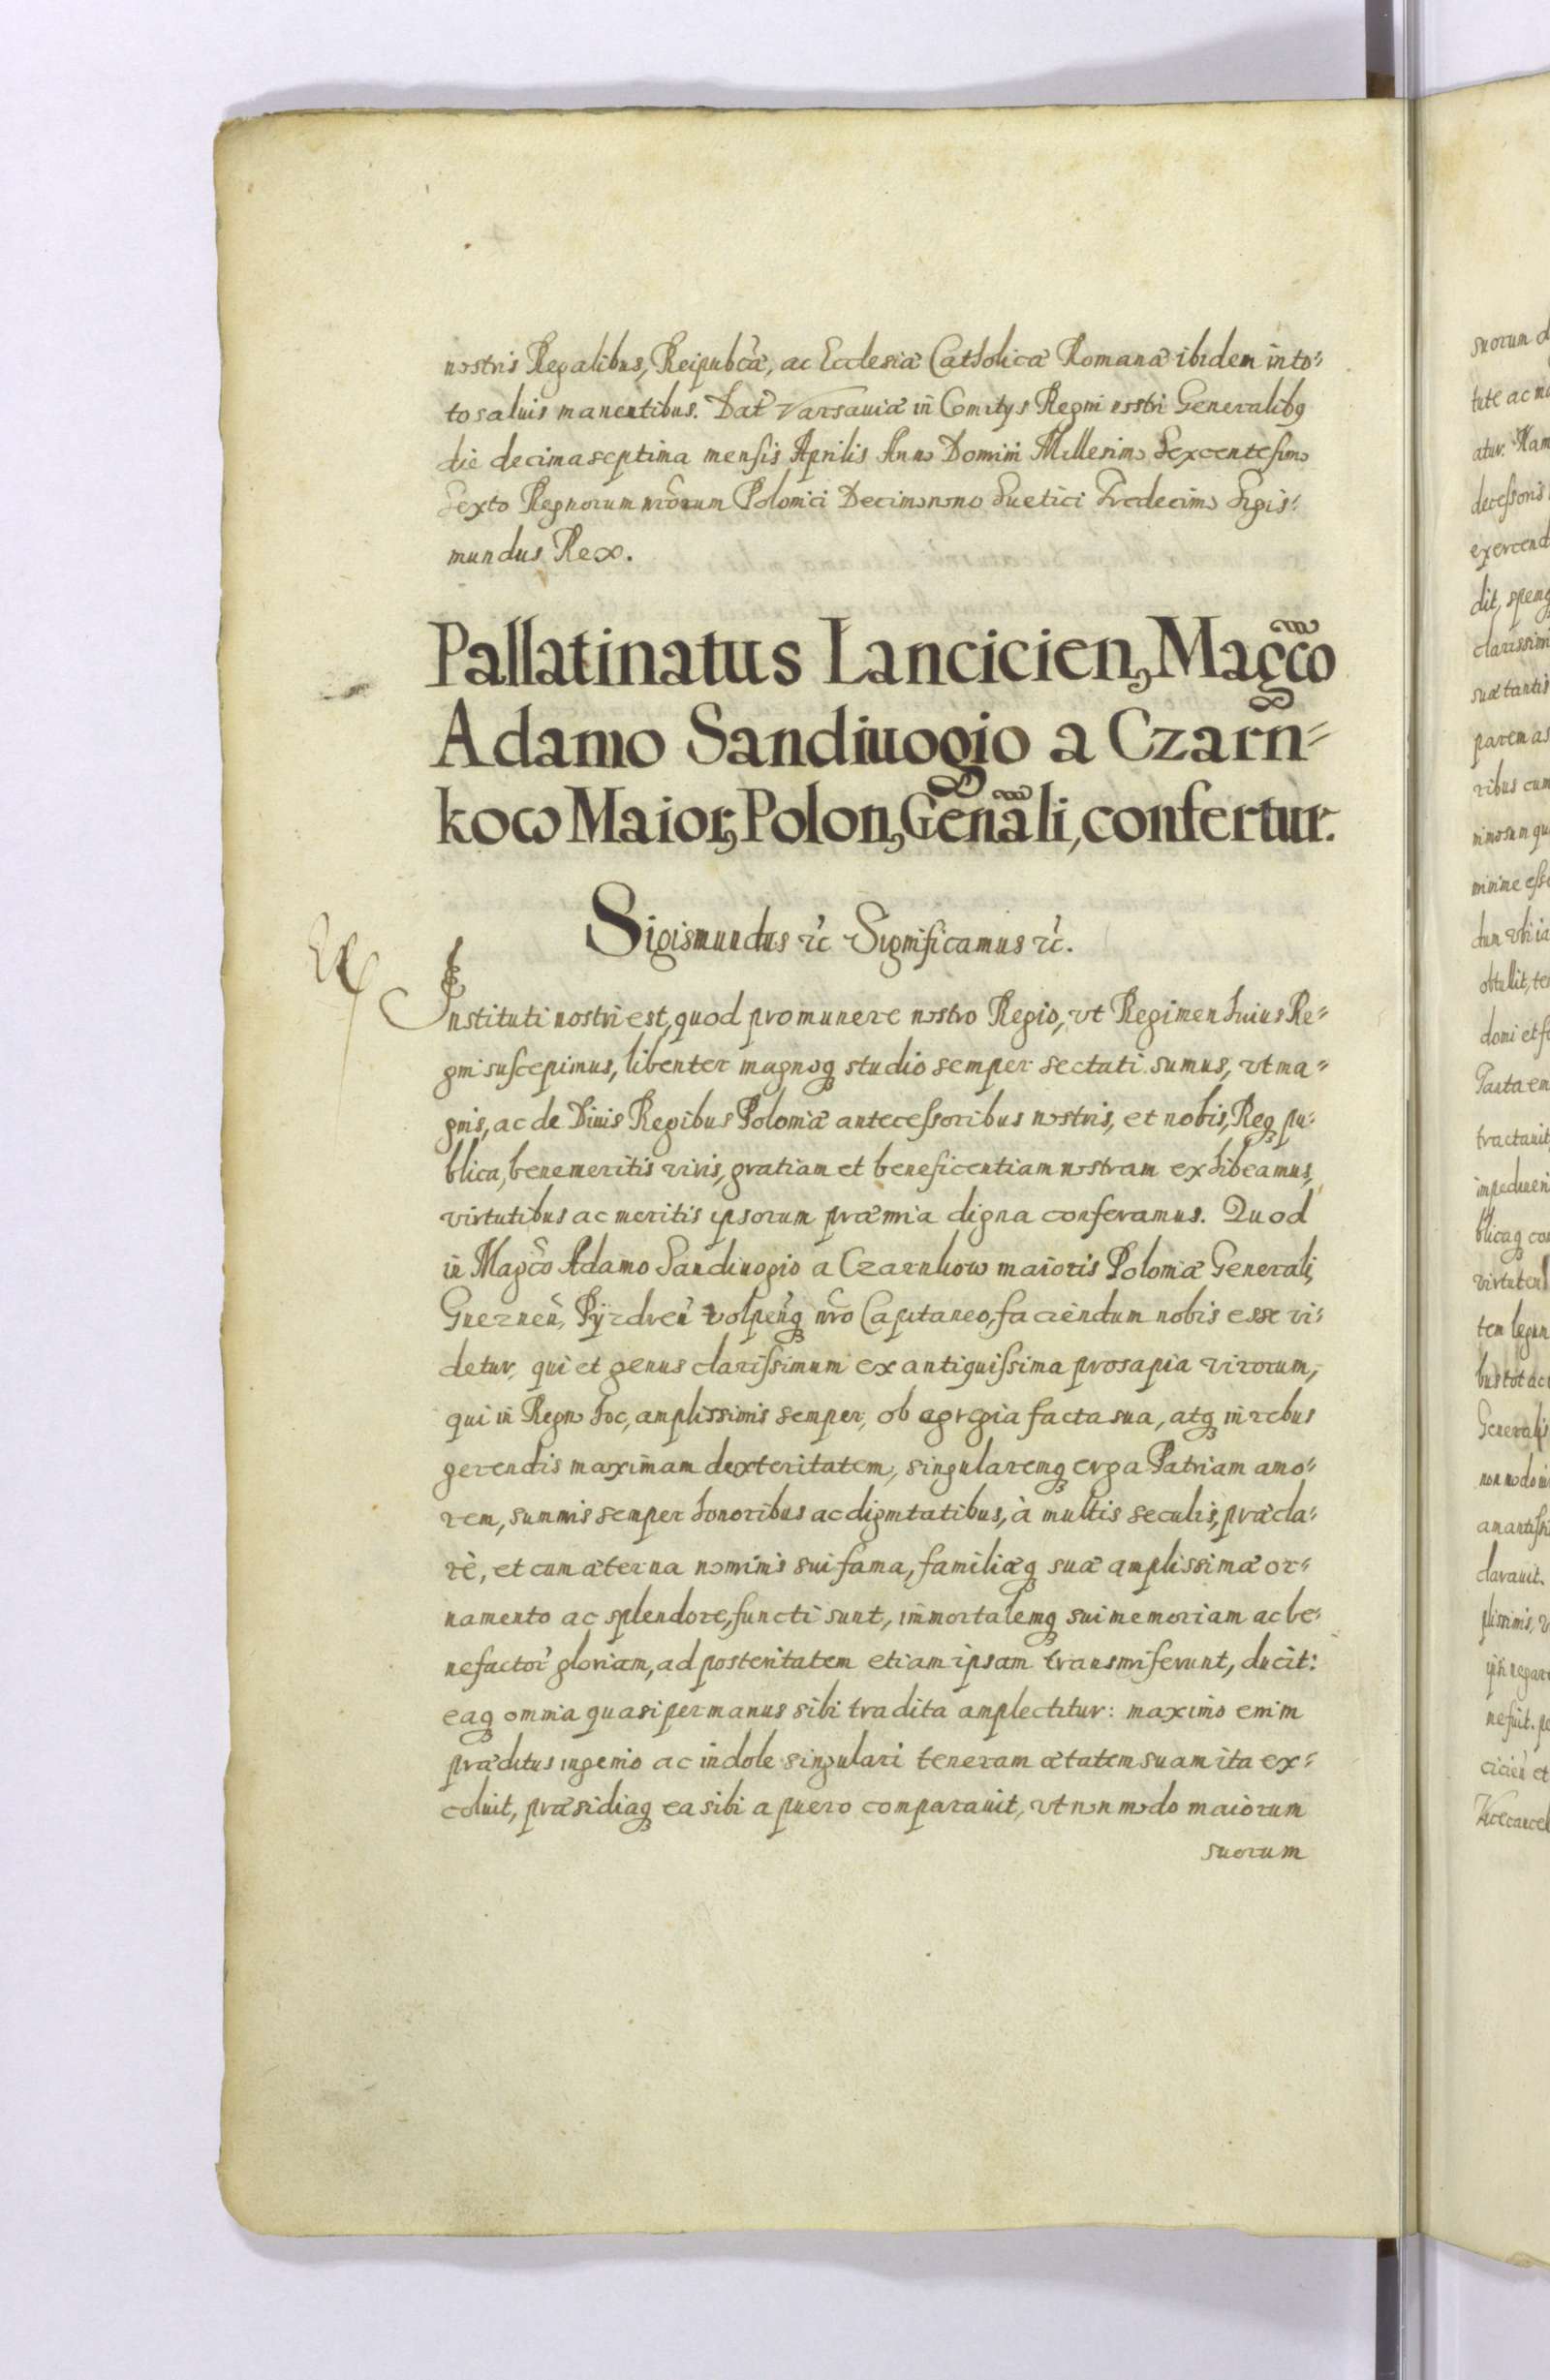 nostris Regalibus, Reipubcæ, ac Ecclesiæ Catholicæ Romanæ ibidem in to-
to saluis manentibus. Dat Varsauiæ in Comitys Regni nostri Generalibꝫ
die decima septima mensis Aprilis Anno Domini Millesimo Sexcentesimo
Sexto Regnorum nrorum Polonici Decimonono Suetici Tredecimo Sigis-
mundus Rex.
Pallatinatus Lancicien, Magco
Adamo Sandiuogio a Czarn-
kow Maior, Polon, Genali, confertur.
Sigismundus ꝛc Significamus ꝛc.
Instituti nostri est, quod pro munere nostro Regio, vt Regimen huius Re-
gni suscepimus, libenter magnoqꝫ studio semper sectati sumus, vt ma-
gnis, ac de Diuis Regibus Poloniæ antecessoribus nostris, et nobis, Reqꝫ pu-
blica, benemeritis viris, gratiam et beneficentiam nostram exhibeamus,
virtutibus ac meritis ipsorum præmia digna conferamus. Quod
in Magco Adamo Sandiuogio a Czarnkow maioris Poloniæ Generali,
Gneznen, Pyzdren volpenqꝫ nro Capitaneo, faciendum nobis esse vi-
detur, qui et genus clarissimum ex antiquissima prosapia virorum,
qui in Regno hoc, amplissimis semper, ob egregia facta sua, atqꝫ in rebus
gerendis maximam dexteritatem, singularemqꝫ erga Patriam amo-
rem, summis semper honoribus ac dignitatibus, à multis seculis, præcla-
rè, et cum æterna nominis sui fama, familiæqꝫ suæ amplissimæ or-
namento ac splendore, functi sunt, immortalemqꝫ sui memoriam ac be-
nefactor gloriam, ad posteritatem etiam ipsam transmiserunt, ducit:
eaqꝫ omnia quasi per manus sibi tradita amplectitur: maximo enim
præditus ingenio ac indole singulari teneram ætatem suam ita ex-
coluit, præsidiaqꝫ ea sibi a puero comparauit, vt non modo maiorum
suorum